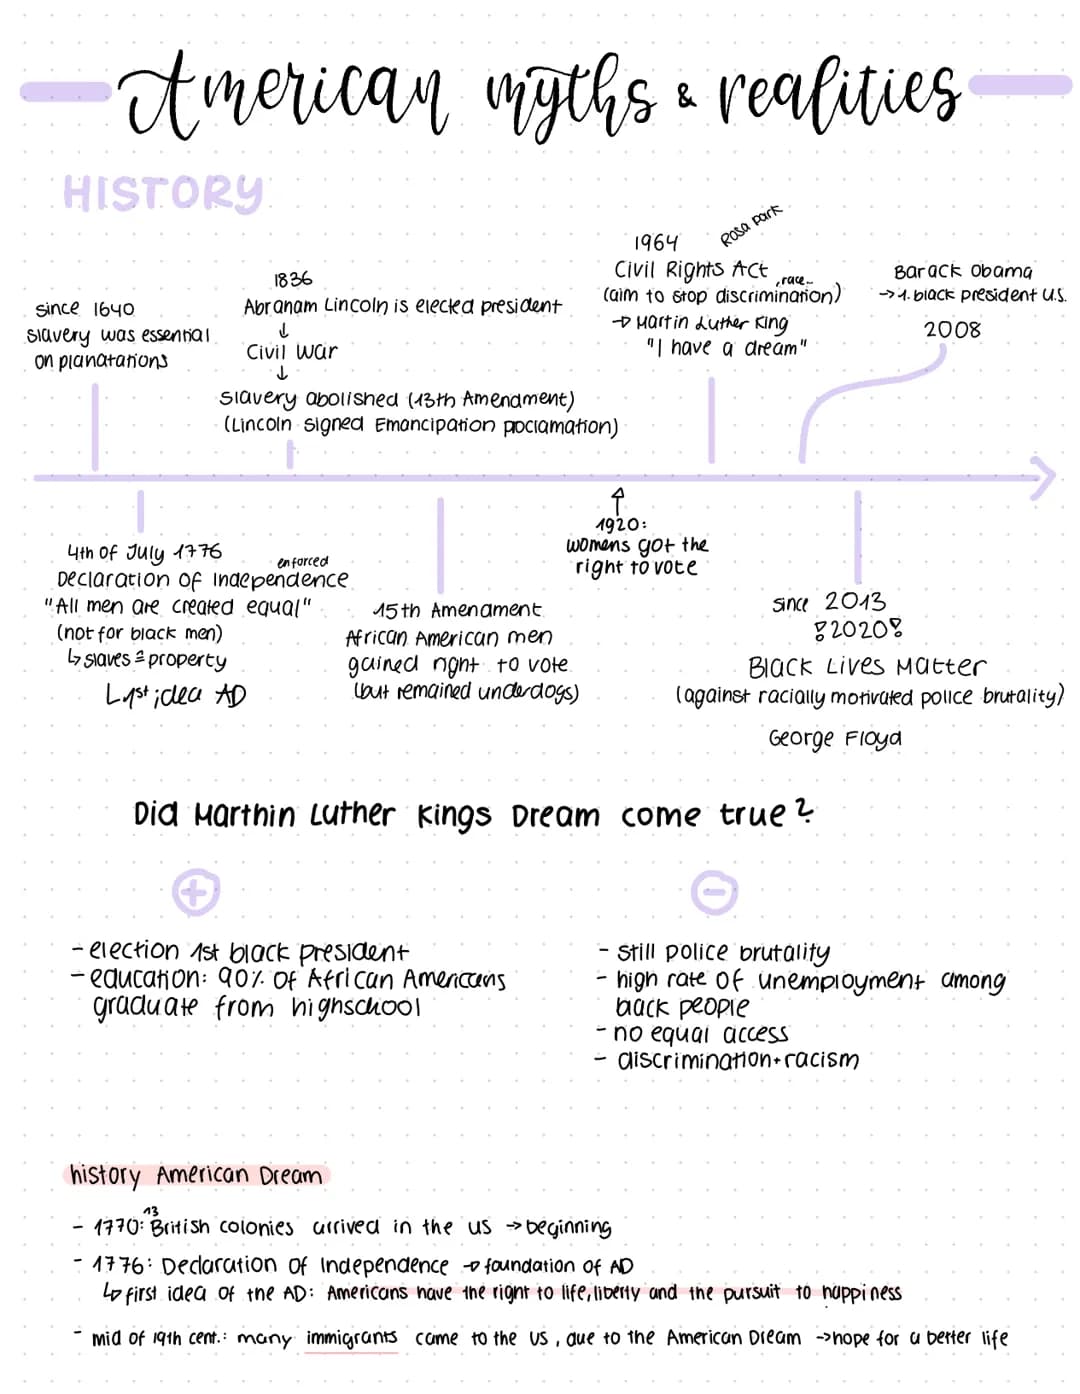 American myths & realities
HISTORY
since 1640
slavery was essential
on planatations
1836
Abranam Lincoln is elected president
↓
Civil War
↓
Slavery abolished (13th Amendment)
(Lincoln signed Emancipation proclamation)
1964
Rosa park
Civil Rights Act
,race..
(aim to stop discrimination)
→ Martin Luther King
"I have a dream"
Barack Obama
→1. black president U.S.
2008
4th of July 1776
enforced
Declaration of Independence
"All men are created equal"
(not for black men)
↳ slaves ≙ property
↳ 1st idea AD
15th Amenament
African American men
gained right to vote
(but remained underdogs)
↑
1920:
womens got the
right to vote
since 2013
!2020!
Black Lives Matter
(against racially motivated police brutality)
George Floyd
Did Marthin Luther Kings Dream come true?
+
- election 1st black president
- education: 90% of African Americans
graduate from highschool
-
- still police brutality
- high rate of unemployment among
back people
- no equal access
- discrimination+racism
history American Dream
13
- 1770: British colonies arrived in the us → beginning
- 1776: Declaration of Independence → foundation of AD
↳ first idea of the AD: Americans have the right to life, liberty and the pursuit to happiness
- mid of 19th cent.: many immigrants came to the US, due to the American Dream → hope for a better life